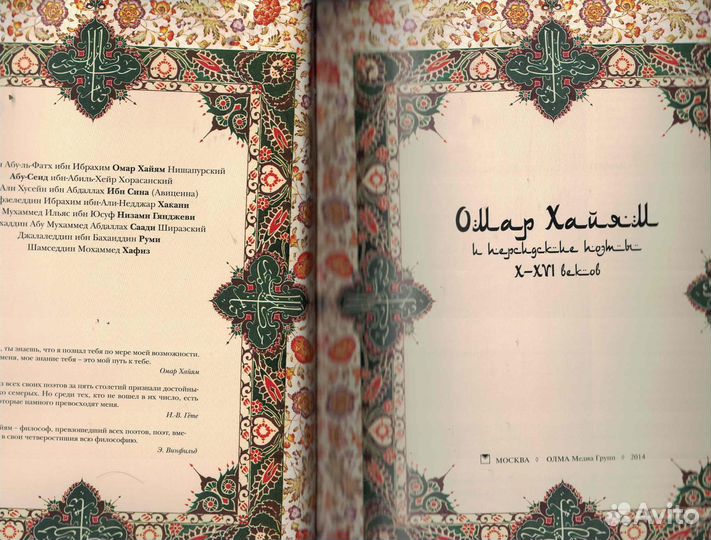 Абу-ль-Фатх ибн Ибрахим Омар Хайям Нишапурский
Абу-Сеид ибн-Абиль-Хейр Хорасанский
Али Хусейн ибн Абдаллах Ибн Сина (Авиценна)
Ибрахим ибн-Али-Неджар Хакани
Мухаммед Ильяс ибн Юсуф Низами Гянджеви
Абу Мухаммед Абдаллах Саади Ширазский
Джалаледдин ибн Бахаиддин Руми
Шамседдин Мохаммед Хафиз
, ты знаешь, что я познал тебя по мере моей возможности.
меня, мое знание тебя – это мой путь к тебе.
Омар Хайям
всех своих поэтов за пять столетий признали достойны-
семерых. Но среди тех, кто не вошел в их число, есть
которые намного превосходят меня.
И.-В. Гёте
– философ, превзошедший всех поэтов, поэт, вме-
в свои четверостишия всю философию.
Э. Винфильд
Омар Хайям
и персидские поэты
X–XVI веков
МОСКВА ◊ ОЛМА Медиа Групп ◊ 2014
Avito